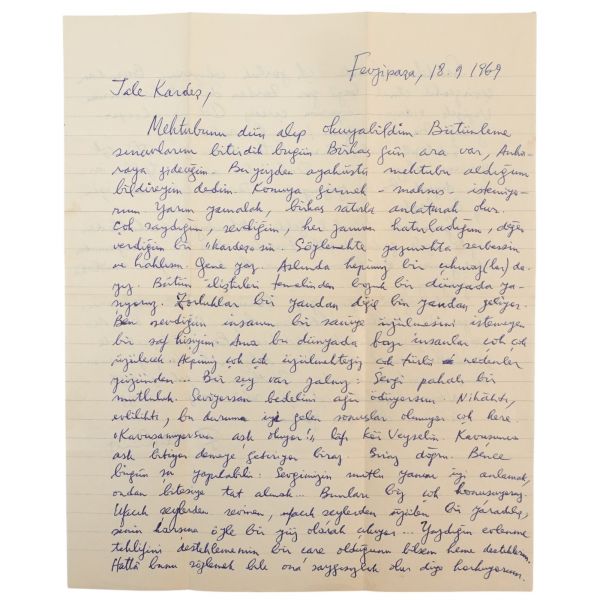 Fevzipaşa, 18.9.1969
Jale Kardeş,
Mektubunu dün alıp okuyabildim. Bütünleme
sınavlarını bitirdik bugün. Birkaç gün ara var, Anka-
raya gideceğim. Bu yüzden ayaküstü mektubu aldığımı
bildireyim dedim. Konuya girmek - mahsus - istemiyo-
rum. Yarım yamalak, birkaç satırla anlatmak olur.
Çok saydığım, sevdiğim, her zaman hatırladığım, değer
verdiğim bir "kardeş"sin. Söylemekte yazmakta serbestsin
ve haklısın. Gene yaz. Aslında hepimiz bir çıkmaz(lar)da-
yız. Bütün ilişkileri temelinden bozuk bir dünyada ya-
şıyoruz. Zorluklar bir yandan değil bin yandan geliyor.
Ben sevdiğim insanın bir saniye üzülmesini istemeyen
bir saf kişiyim. Ama bu dünyada bazı insanlar çok çok
üzülecek. Hepimiz çok çok üzülmekteyiz çok türlü nedenler
yüzünden... Bir şey var yalnız: Sevgi pahalı bir
mutluluk. Seviyorsan bedelini ağır ödüyorsun. Nikâhtı,
evlilikti, bu duruma iyi gelen sonuçlar olmuyor çok kere.
"Kavuşamıyorsun aşk oluyor!" lâfı kör Veyselin. Kavuşunca
aşk bitiyor demeye getiriyor biraz. Biraz doğru. Bence
bugün şu yapılabilir: Sevgimizin mutlu yanını iyi anlamak,
ondan bitesiye tat almak... Bunları biz çok konuşuyoruz.
Ufacık şeylerden sevinen, ufacık şeylerden üzülen bir yaradılış,
senin karşına özle bir güç olarak çıkıyor... Yazdığın evlenme
teklifini desteklememin bir çare olduğunu bilsem hemen desteklerim.
Hattâ bunu söylemek bile ona saygısızlık olur diye korkuyorum.